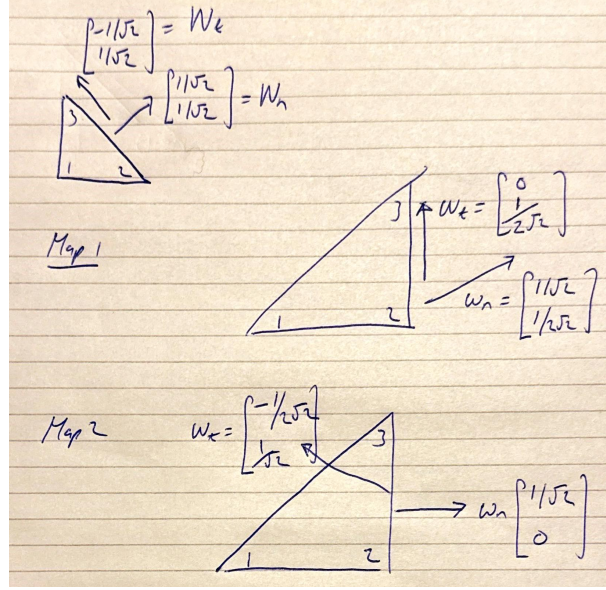 [-1/√2 1/√2] = W_t
[1/√2 1/√2] = W_n
3
1 2
Map 1
3
W_t = [0 1/2√2]
1 2
W_n = [1/√2 1/2√2]
Map 2
W_t = [-1/2√2 1/√2]
3
W_n [1/√2 0]
1 2